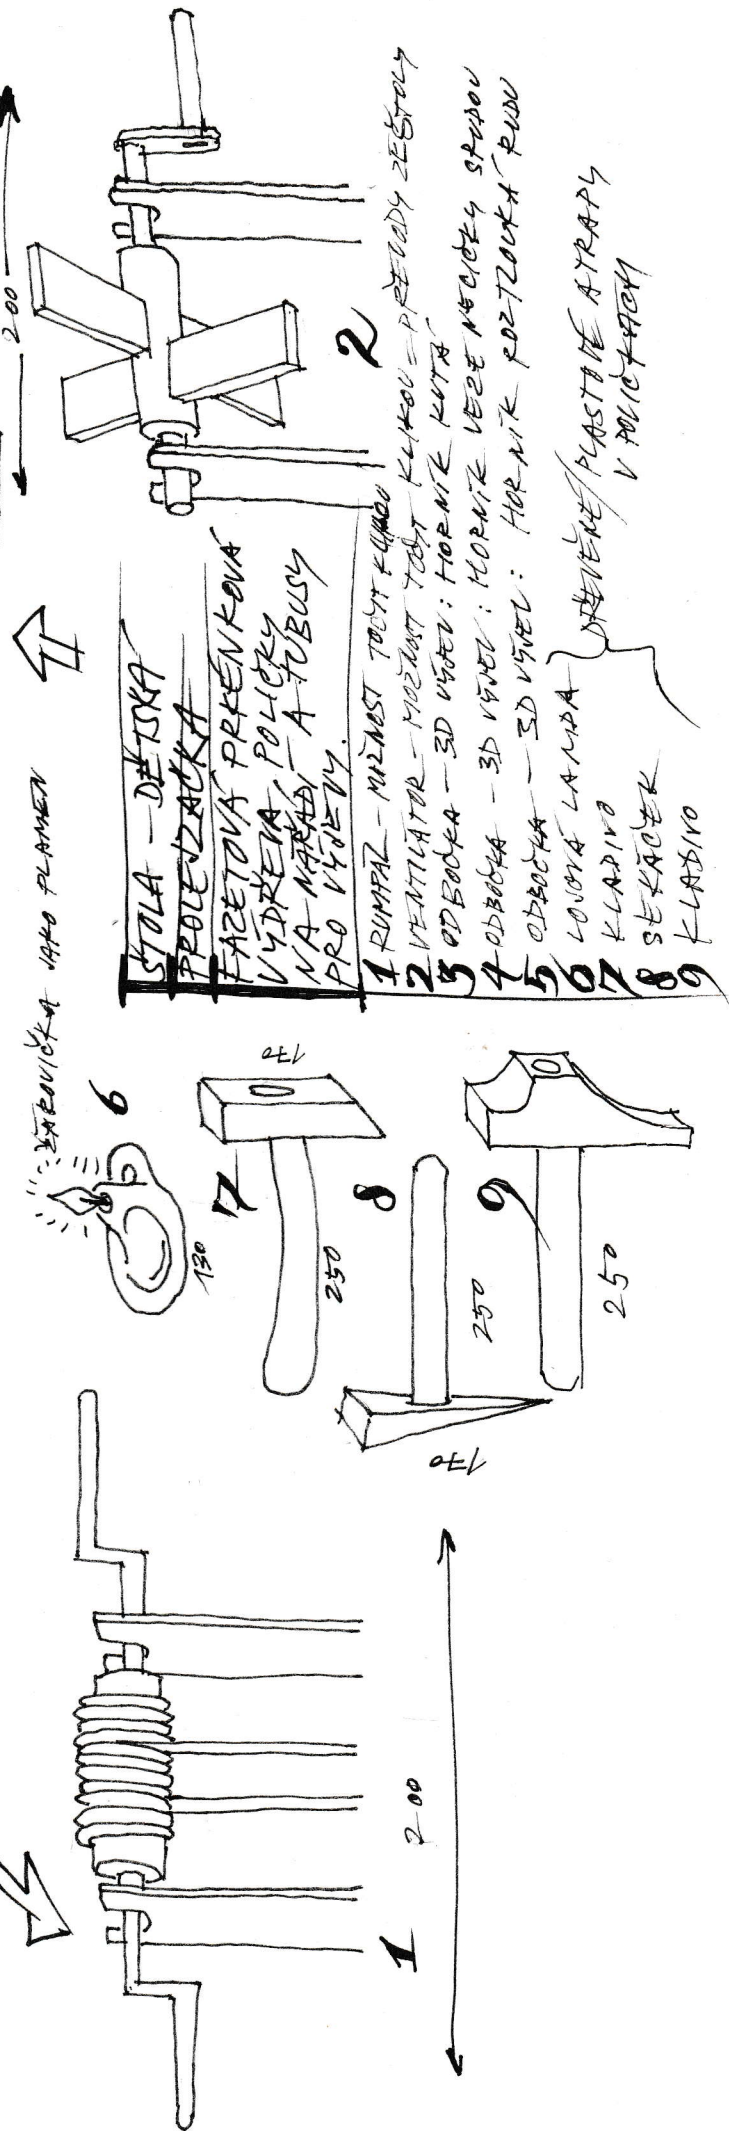 ŽÁROVIČKA JAKO PLAMEN
200
ŠTOLA – DĚTSKÁ
PROLEJZAČKA
FAZETOVÁ PRKÉNKOVÁ
VÝDŘEVA, POLIČKY
NA NÁŘADÍ – A TUBUSY
PRO VÝJEVY.
1 RUMPÁL – MOŽNOST TOČIT KLIKOU
2 VENTILÁTOR – MOŽNOST TOČIT KLIKOU = PŘEVODY ZE ŠTOLY
3 ODBOČKA – 3D VÝJEV: HORNÍK KUTÁ
4 ODBOČKA – 3D VÝJEV: HORNÍK VEZE NECIČKY S RUDOU
5 ODBOČKA – 3D VÝJEV: HORNÍK ROZTLOUKÁ RUDU
6 LOJOVÁ LAMPA
7 KLADIVO
8 SEKÁČEK
9 KLADIVO
DŘEVĚNÉ/PLASTOVÉ ATRAPY
V POLIČKÁCH
1
200
2
6
130
7
170
250
8
250
170
9
250